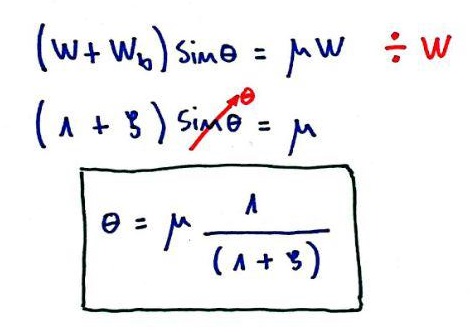 (W + W_b) sinθ = μW ÷ W
(1 + ξ) sinθ = μ θ
θ = μ 1/(1 + ξ)